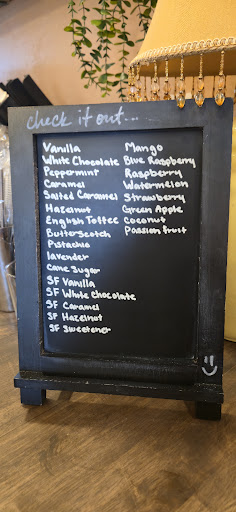 check it out...
Vanilla
White Chocolate
Peppermint
Caramel
Salted Caramel
Hazelnut
English Toffee
Butterscotch
Pistachio
lavender
cane sugar
SF Vanilla
SF White Chocolate
SF Caramel
SF Hazelnut
SF Sweetener
Mango
Blue Raspberry
Raspberry
Watermelon
Strawberry
Green Apple
Coconut
Passion fruit